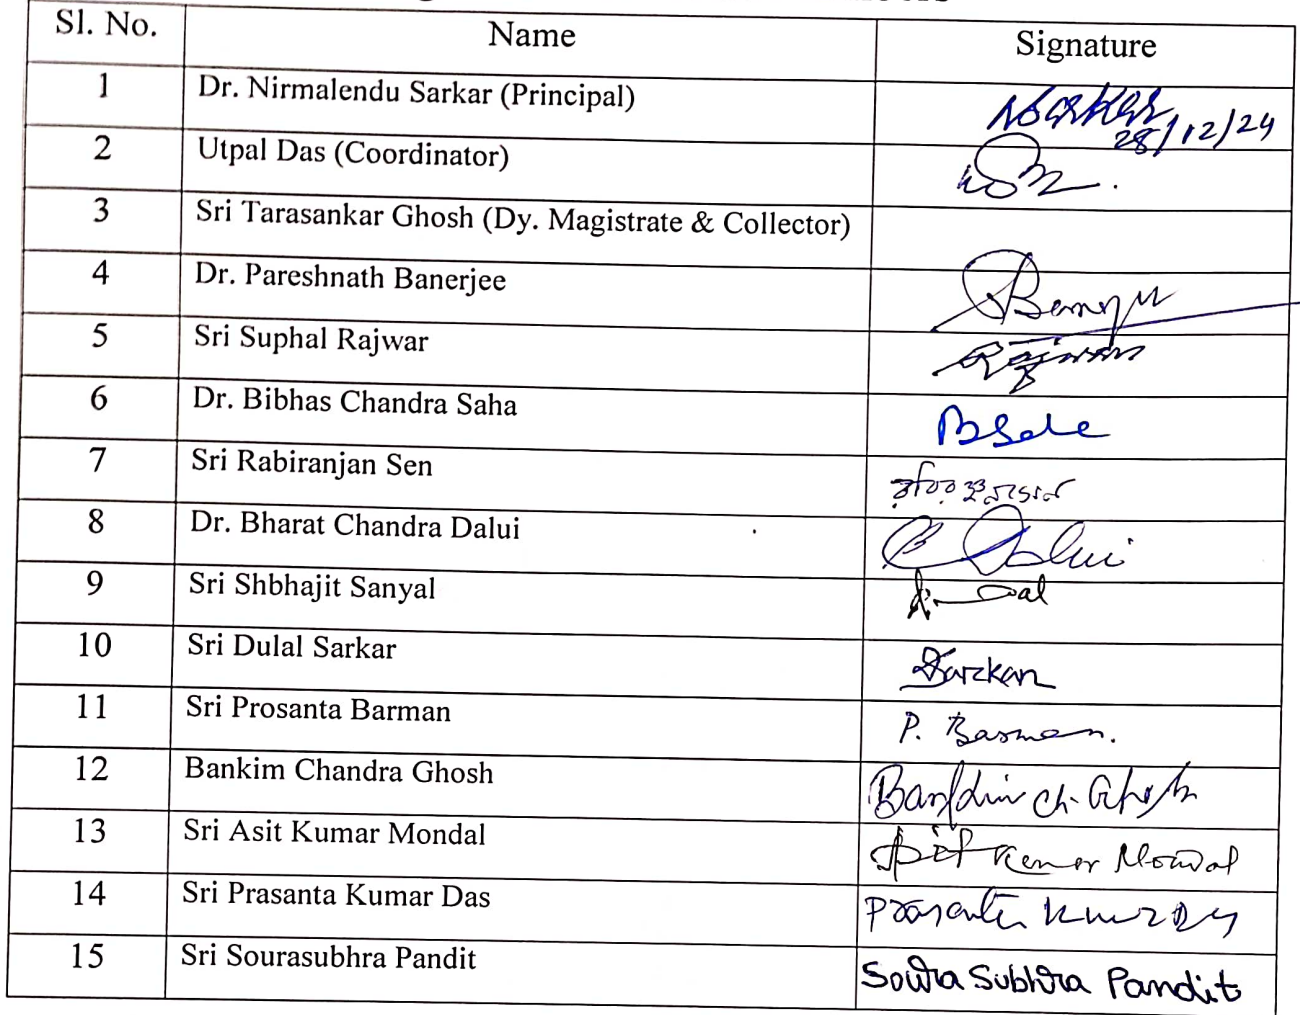 Sl. No. Name Signature
1 Dr. Nirmalendu Sarkar (Principal) NSarkar
28/12/24
2 Utpal Das (Coordinator)
3 Sri Tarasankar Ghosh (Dy. Magistrate & Collector)
4 Dr. Pareshnath Banerjee
5 Sri Suphal Rajwar
6 Dr. Bibhas Chandra Saha
7 Sri Rabiranjan Sen
8 Dr. Bharat Chandra Dalui B Dalui
9 Sri Shbhajit Sanyal
10 Sri Dulal Sarkar Sarkar
11 Sri Prosanta Barman P. Barman.
12 Bankim Chandra Ghosh Bankim Ch. Ghosh
13 Sri Asit Kumar Mondal Asit Kumar Mondal
14 Sri Prasanta Kumar Das Prasanta Kumar Das
15 Sri Sourasubhra Pandit Soura Subhra Pandit